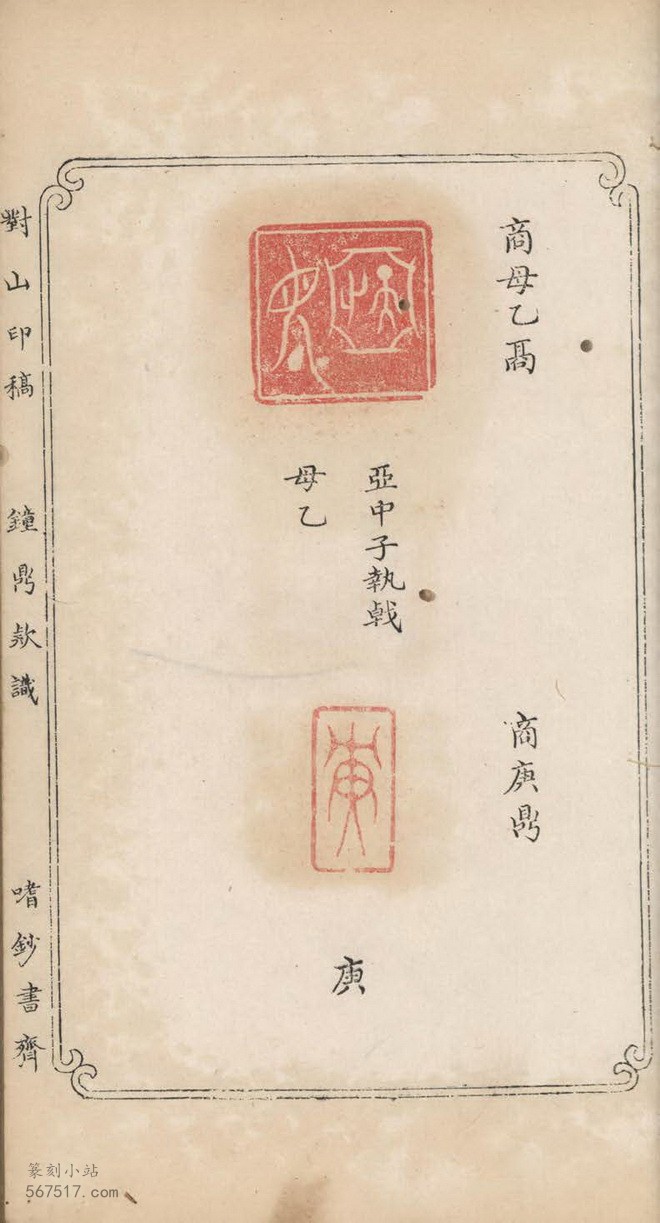 商母乙鬲
亞中子執戟
母乙
商庚鼎
庚
對山印稿 鐘鼎欵識 嗜鈔書齊
篆刻小站
567517.com